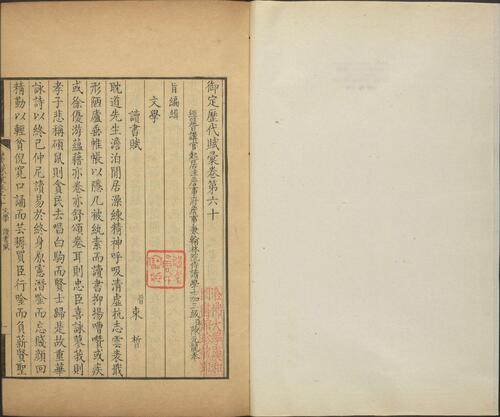 御定歷代賦彙卷第六十
經筵日講官起居注詹事府詹事兼翰林院侍讀學士加三級臣陳元龍奉
旨編輯
文學
讀書賦
晉 束晳
耽道先生澹泊閒居藻練精神呼吸清虛抗志雲表戢
形陋廬垂帷帳以隱几被紈素而讀書抑揚嘈囋或疾
或徐優游蘊藉亦卷亦舒頌卷耳則忠臣喜詠蓼莪則
孝子悲稱碩鼠則貪民去唱白駒而賢士歸是故重華
詠詩以終己仲尼讀易於終身原憲潛吟而忘賤顏回
精勤以輕貧倪寬口誦而芸耨買臣行吟而負薪賢聖